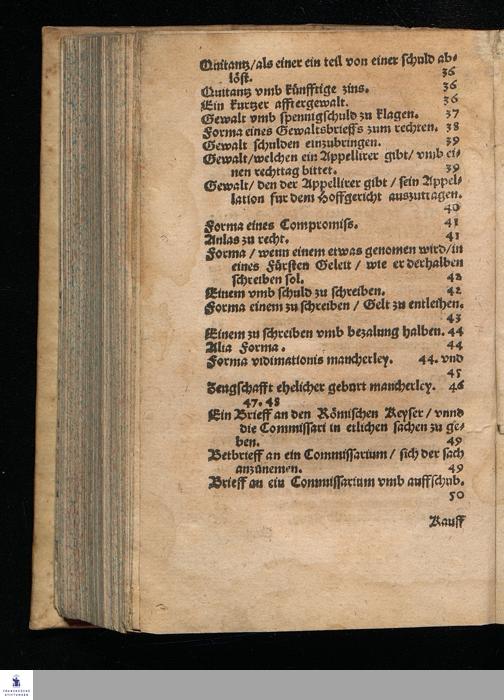 Quitantz/als einer ein teil von einer schuld ab-
löst. 36
Quitantz vmb künfftige zins. 36
Ein kurtzer afftergewalt. 36
Gewalt vmb spennigschuld zu klagen. 37
Forma eines Gewaltsbrieffs zum rechten. 38
Gewalt schulden einzubringen. 39
Gewalt/welchen ein Appellirer gibt/vmb ei-
nen rechttag bittet. 39
Gewalt/ den der Appellirer gibt/ sein Appel-
lation fur dem Hoffgericht auszutragen.
40
Forma eines Compromiss. 41
Anlas zu recht. 41
Forma / wenn einem etwas genomen wird/in
eines Fürsten Geleit / wie er derhalben
schreiben sol. 42
Einem vmb schuld zu schreiben. 42
Forma einem zu schreiben / Gelt zu entleihen.
43
Einem zu schreiben vmb bezalung halben. 44
Alia Forma. 44
Forma vidimationis mancherley. 44. vnd
45
Zeugschafft ehelicher geburt mancherley. 46
47. 48
Ein Brieff an den Römischen Keyser / vnnd
die Commissari in etlichen sachen zu ge-
ben. 49
Betbrieff an ein Commissarium / sich der sach
anzunemen. 49
Brieff an ein Commissarium vmb auffschub.
50
Kauff
FRANCKESCHE
STIFTUNGEN